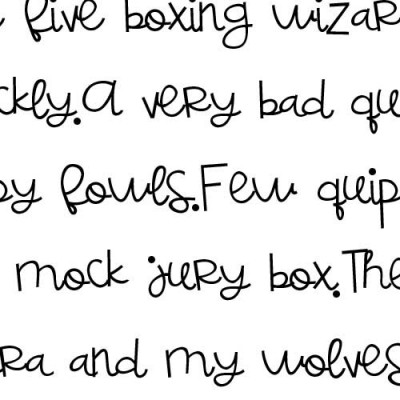 five boxing wizar
ckly. A very bad qu
by fowls. Few quip
mock jury box. The
ra and my wolves